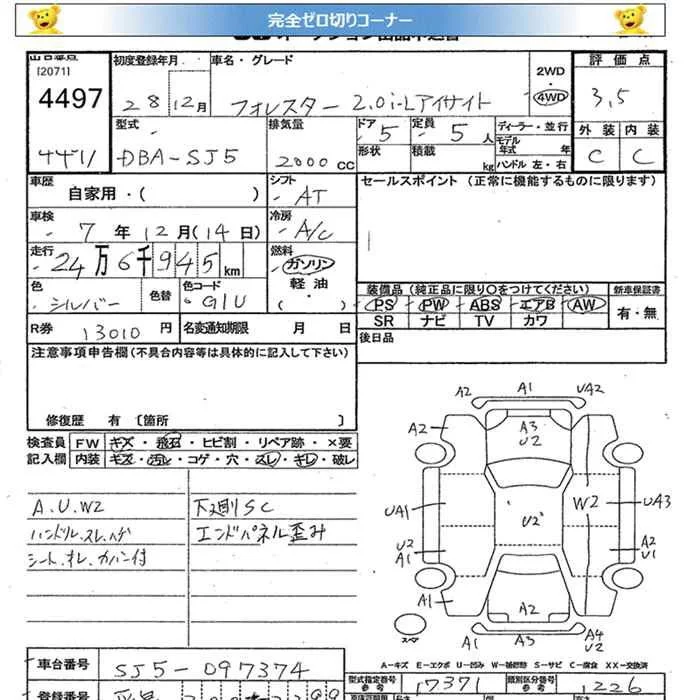 完全ゼロ切りコーナー
[2071]
4497
初度登録年月
28 12月
車名・グレード
フォレスター 2.0i-Lアイサイト
2WD
・
4WD
評価点
3.5
外装 内装
C C
型式
DBA-SJ5
排気量
2000 CC
ドア 5
定員 5 人
形状
積載 kg
ディーラー・並行
モデル年式 年
ハンドル 左・右
車歴
自家用・( )
シフト
AT
セールスポイント (正常に機能するものに限ります)
車検
7 年 12 月(14 日)
冷房
A/C
走行
24万6千945km
燃料
ガソリン
軽油
( )
色
シルバー
色替
色コード
G1U
装備品(純正品に限り○をつけてください)
PS PW ABS エアB AW
SR ナビ TV カワ
新車保証書
有・無
R券 13010 円
名変通知期限 月 日
後日品
注意事項申告欄(不具合内容等は具体的に記入して下さい)
修復歴 有 〔箇所 〕
検査員記入欄
FW キズ・飛石・ヒビ割・リペア跡・×要
内装 キズ・汚レ・コゲ・穴・スレ・キレ・破レ
A.U.W2
ハンドル.スレ.ハゲ
シート.オレ.カバン付
下廻りSC
エンドパネル歪み
A2 A1 UA2
A2 A3 U2
UA1 U2 W2 UA3
U2 A1
A2 U1
A1 A2
A1 A3 A4 U2
スペア
A-キズ E-エクボ U-凹み W-補修跡 S-サビ C-腐食 XX-交換済
車台番号
SJ5-097374
型式指定番号
参考
17371
類別区分番号
参考
1226
登録番号